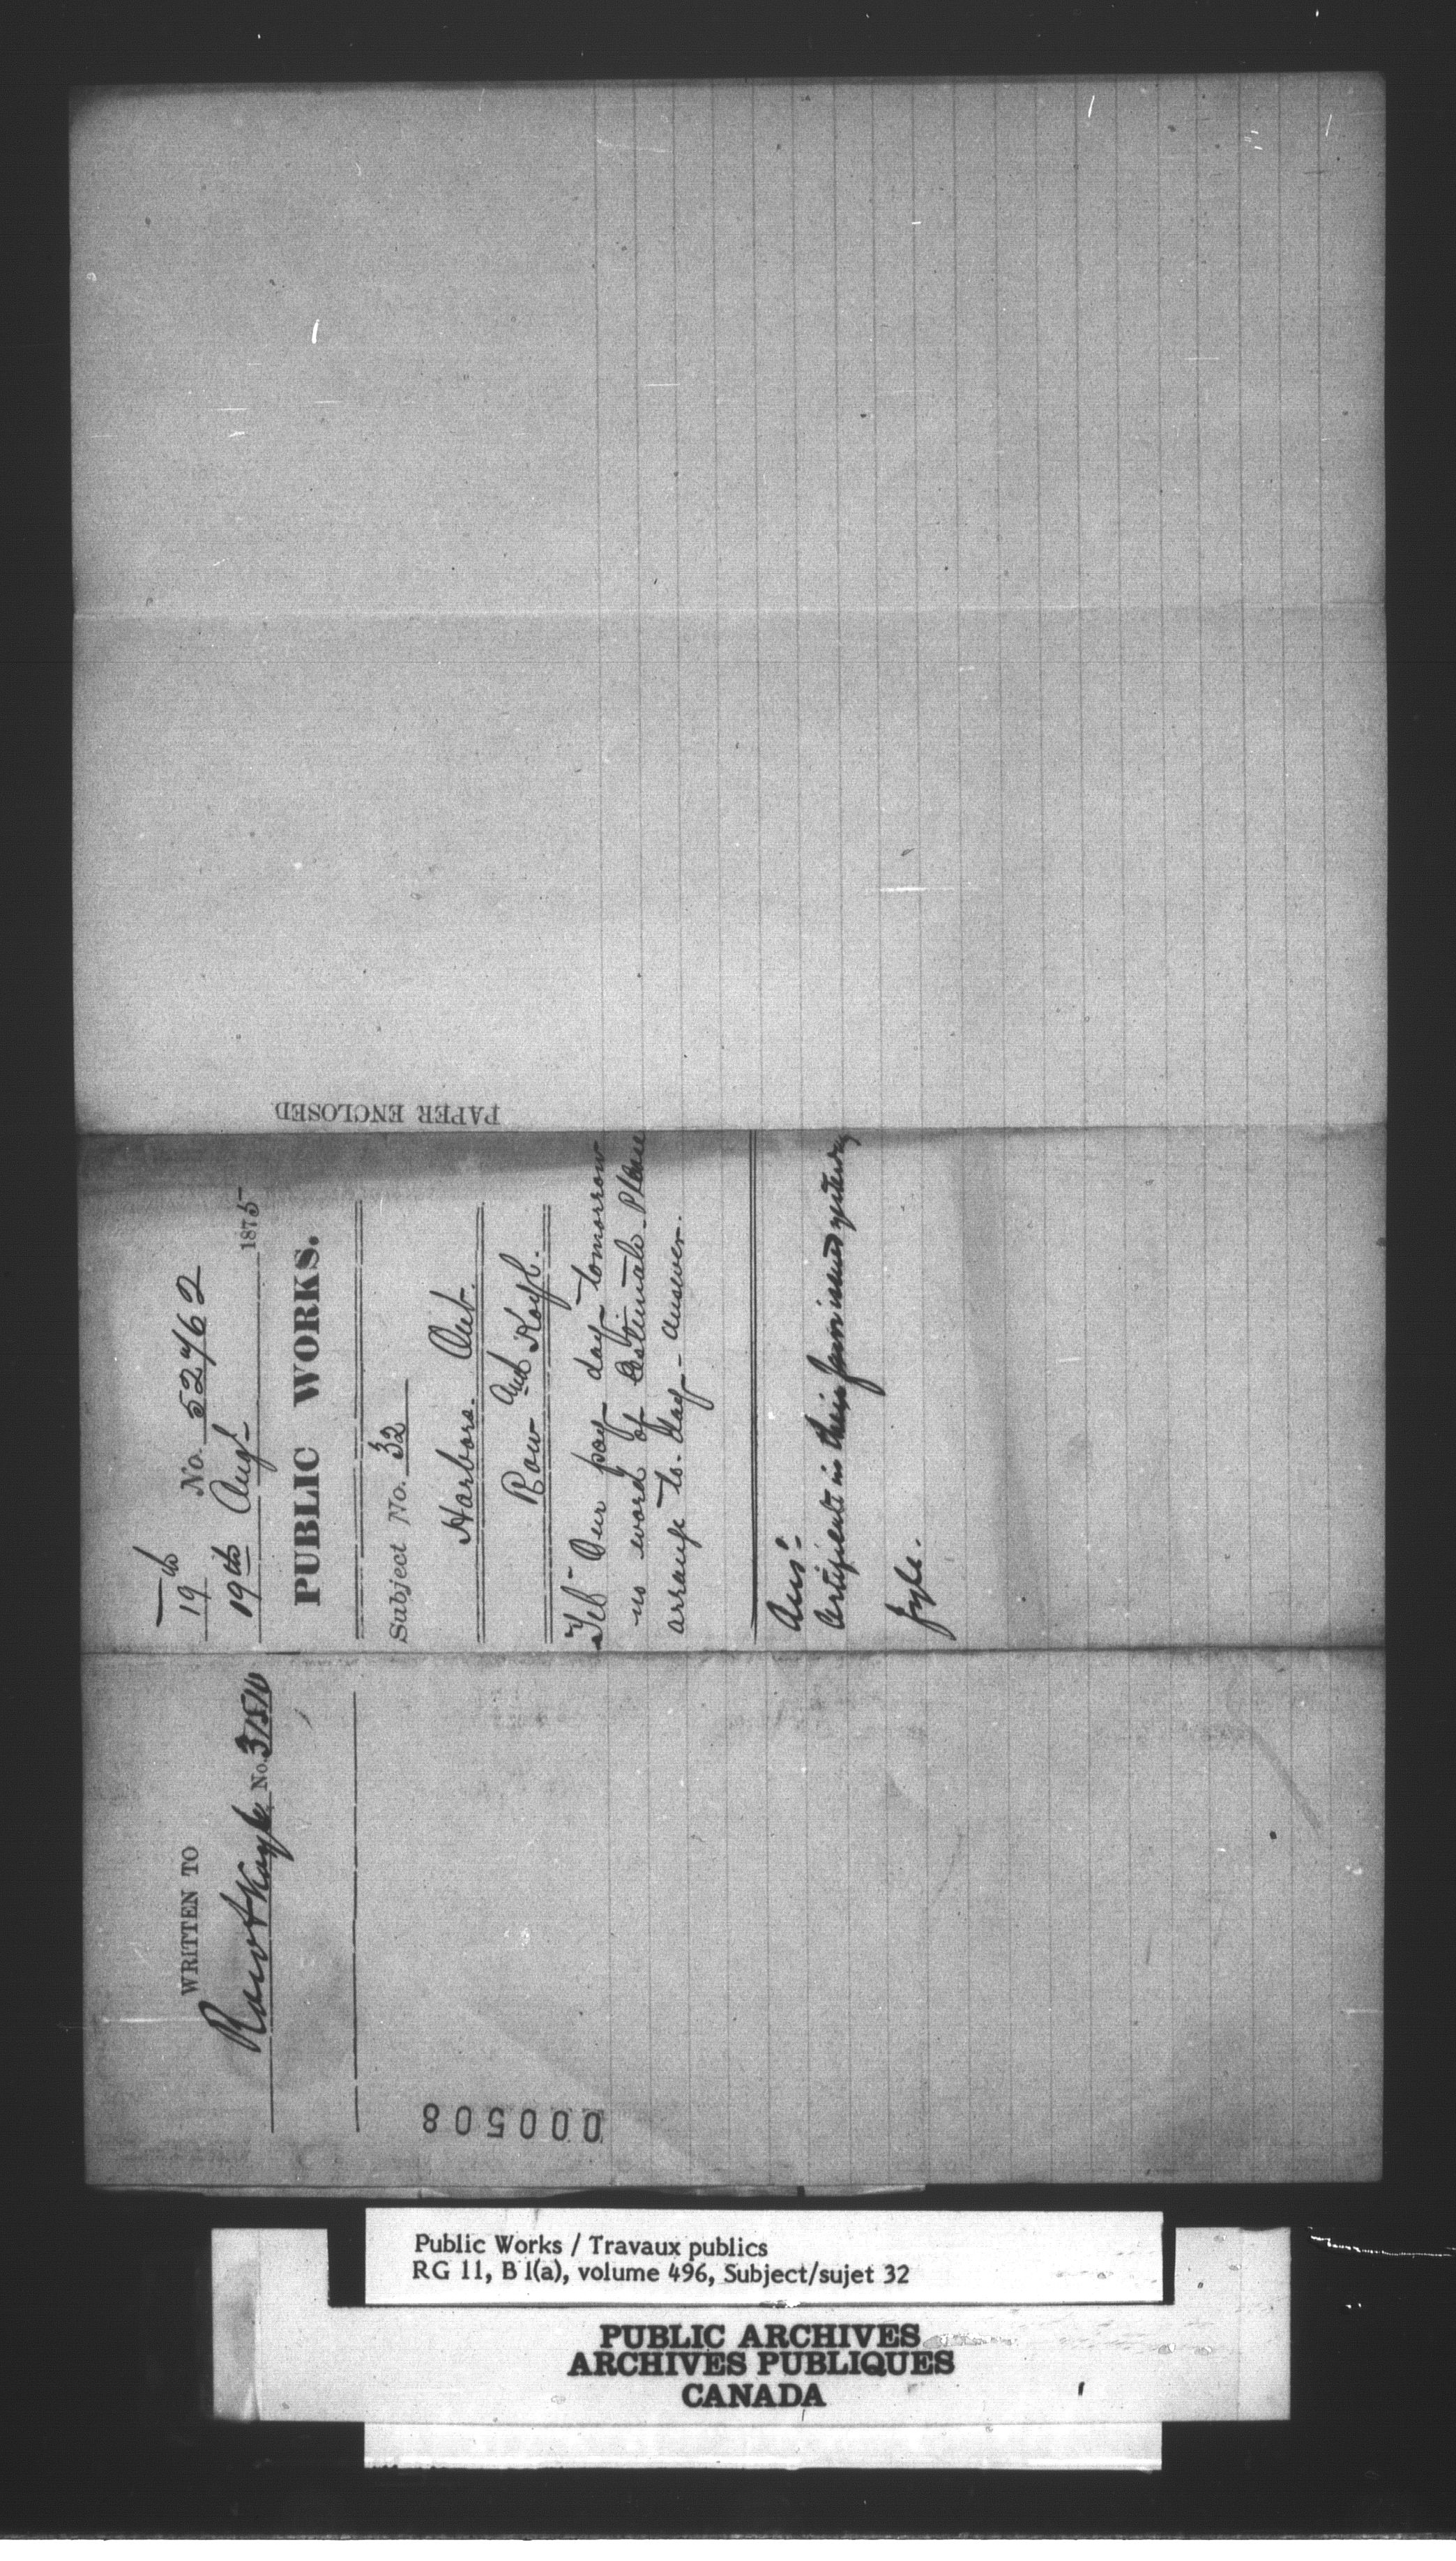 19th No. 52762
19th Augt 1875
PUBLIC WORKS.
Subject No. 32
Harbors. Ont.
Row and Koyl.
Tel - Our pay day tomorrow
no word of Estimate. Please
arrange to-day - answer.
Ans:-
Certificate in their favor issued yesterday
file.
PAPER ENCLOSED
WRITTEN TO
Row & Koyle No.
000508
Public Works / Travaux publics
RG 11, B 1(a), volume 496, Subject/sujet 32
PUBLIC ARCHIVES
ARCHIVES PUBLIQUES
CANADA